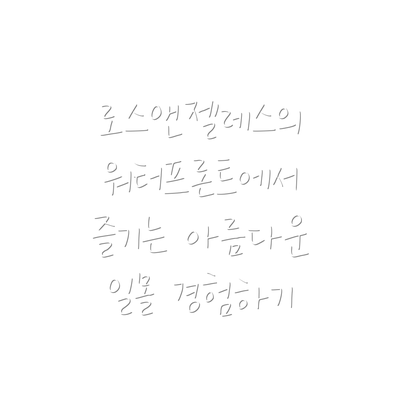 로스앤젤레스의
워터프론트에서
즐기는 아름다운
일몰 경험하기